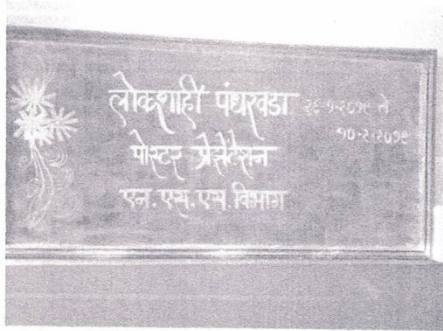 लोकशाही पंधरवडा २६-१-२०१९ ते
१०-२-२०१९
पोस्टर प्रेझेंटेशन
एन.एस.एस.विभाग